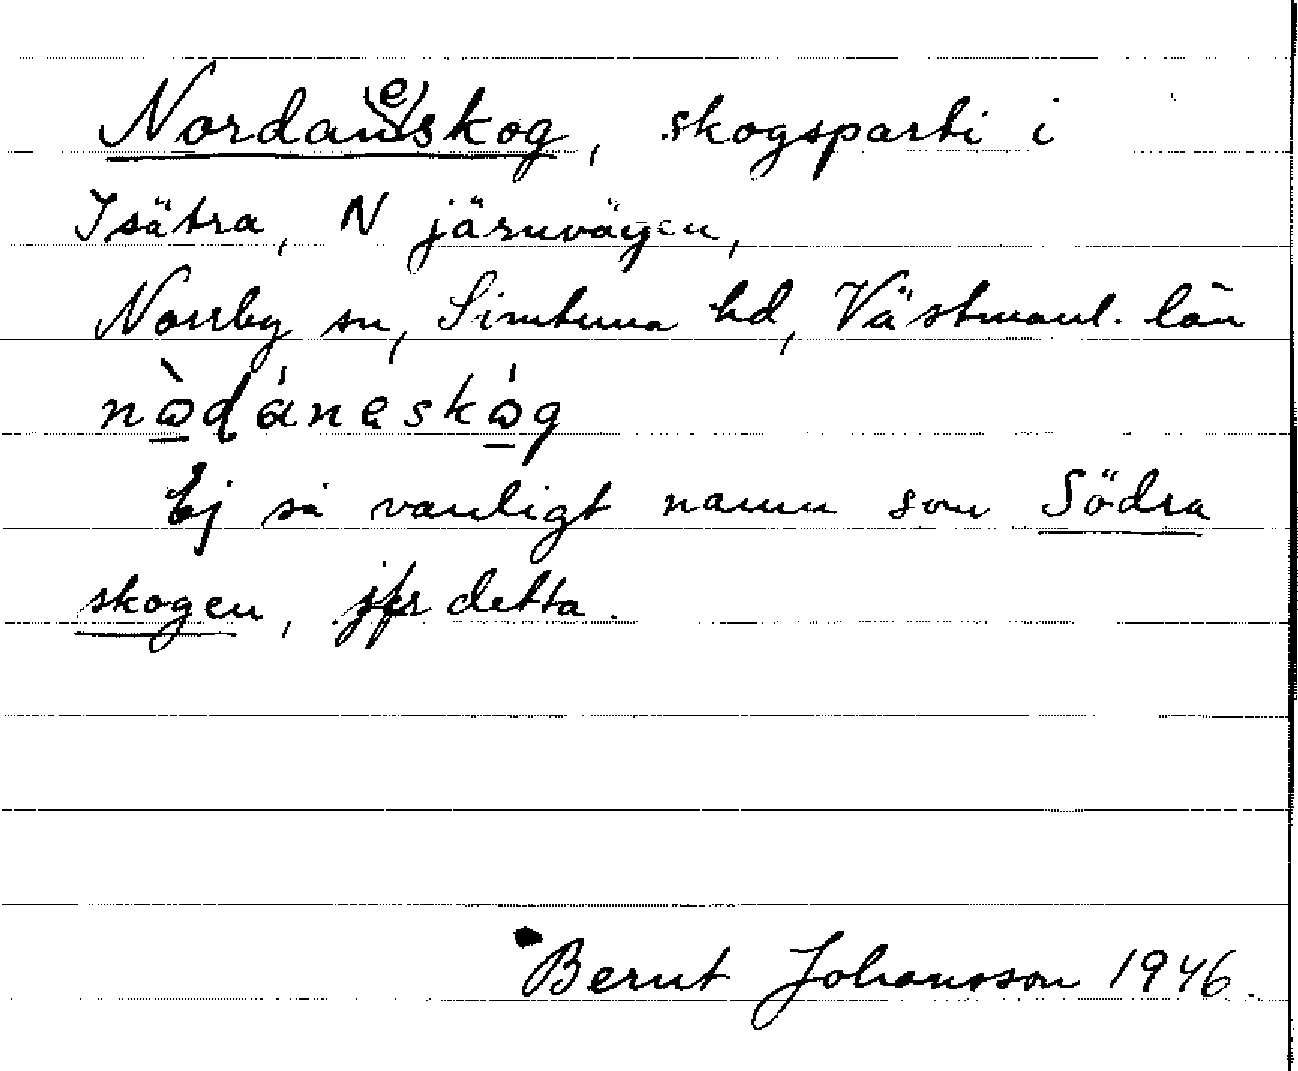 Nordan(e)skog, skogsparti i
Isätra, N järnvägen,
Norrby sn, Simtuna hd, Västmanl. län
nὼ̲dáneskώ̲g
Ej så vanligt namn som Södra
skogen, jfr detta.
Bernt Johansson 1946.